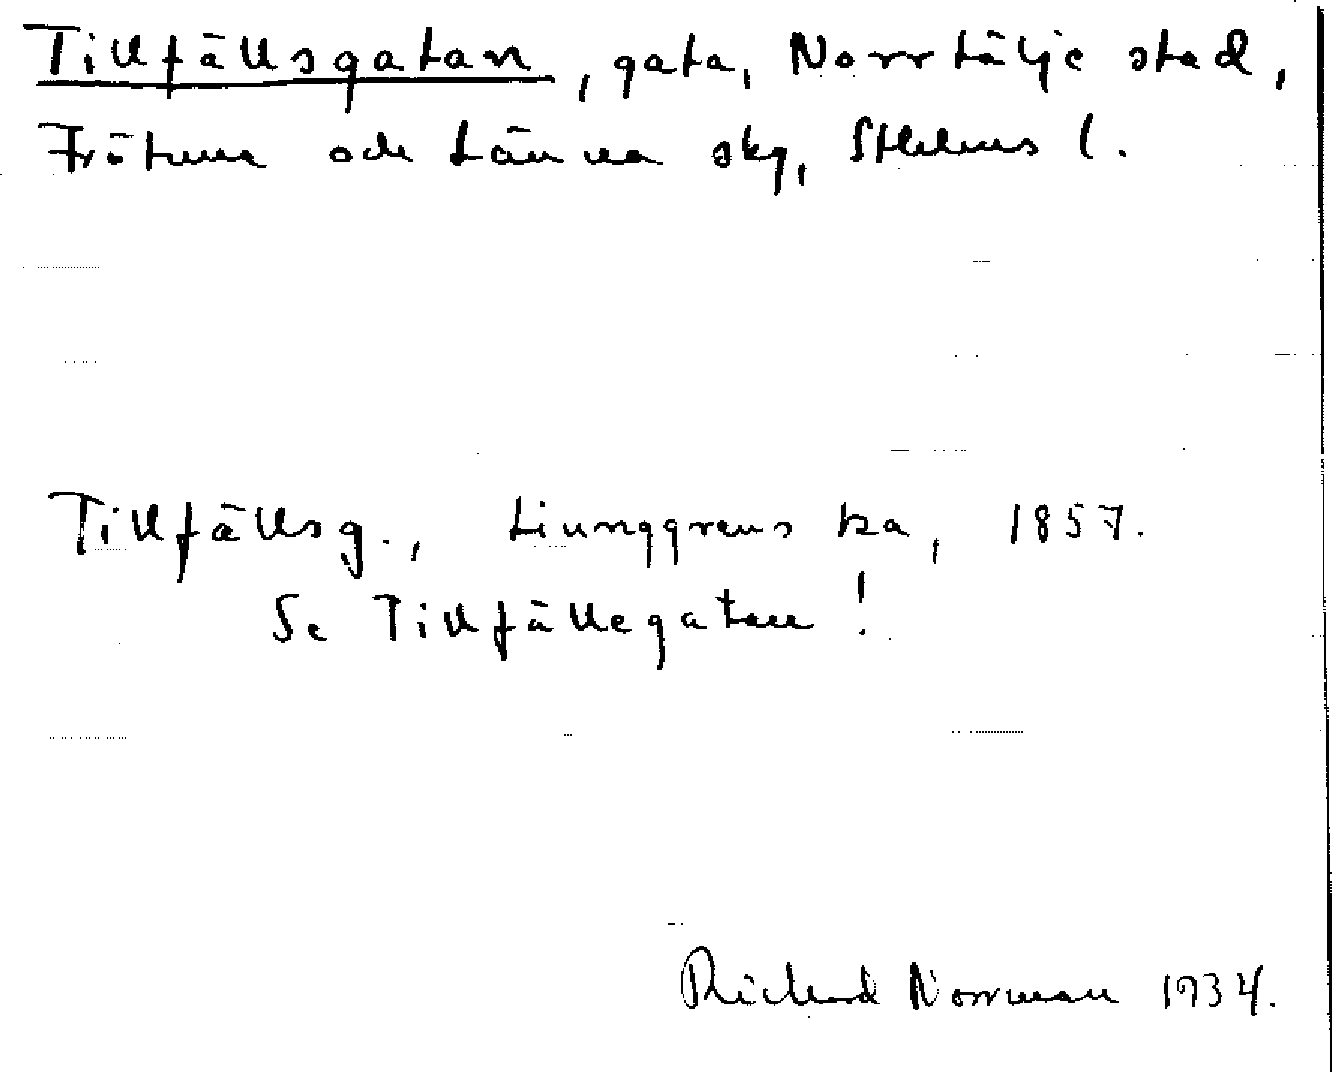 Tillfällsgatan, gata, Norrtälje stad,
Frötuna och Länna skg, Sthlms l.
Tillfällsg., Ljunggrens ka, 1857.
Se Tillfällegatan!
Richard Norrman 1934.